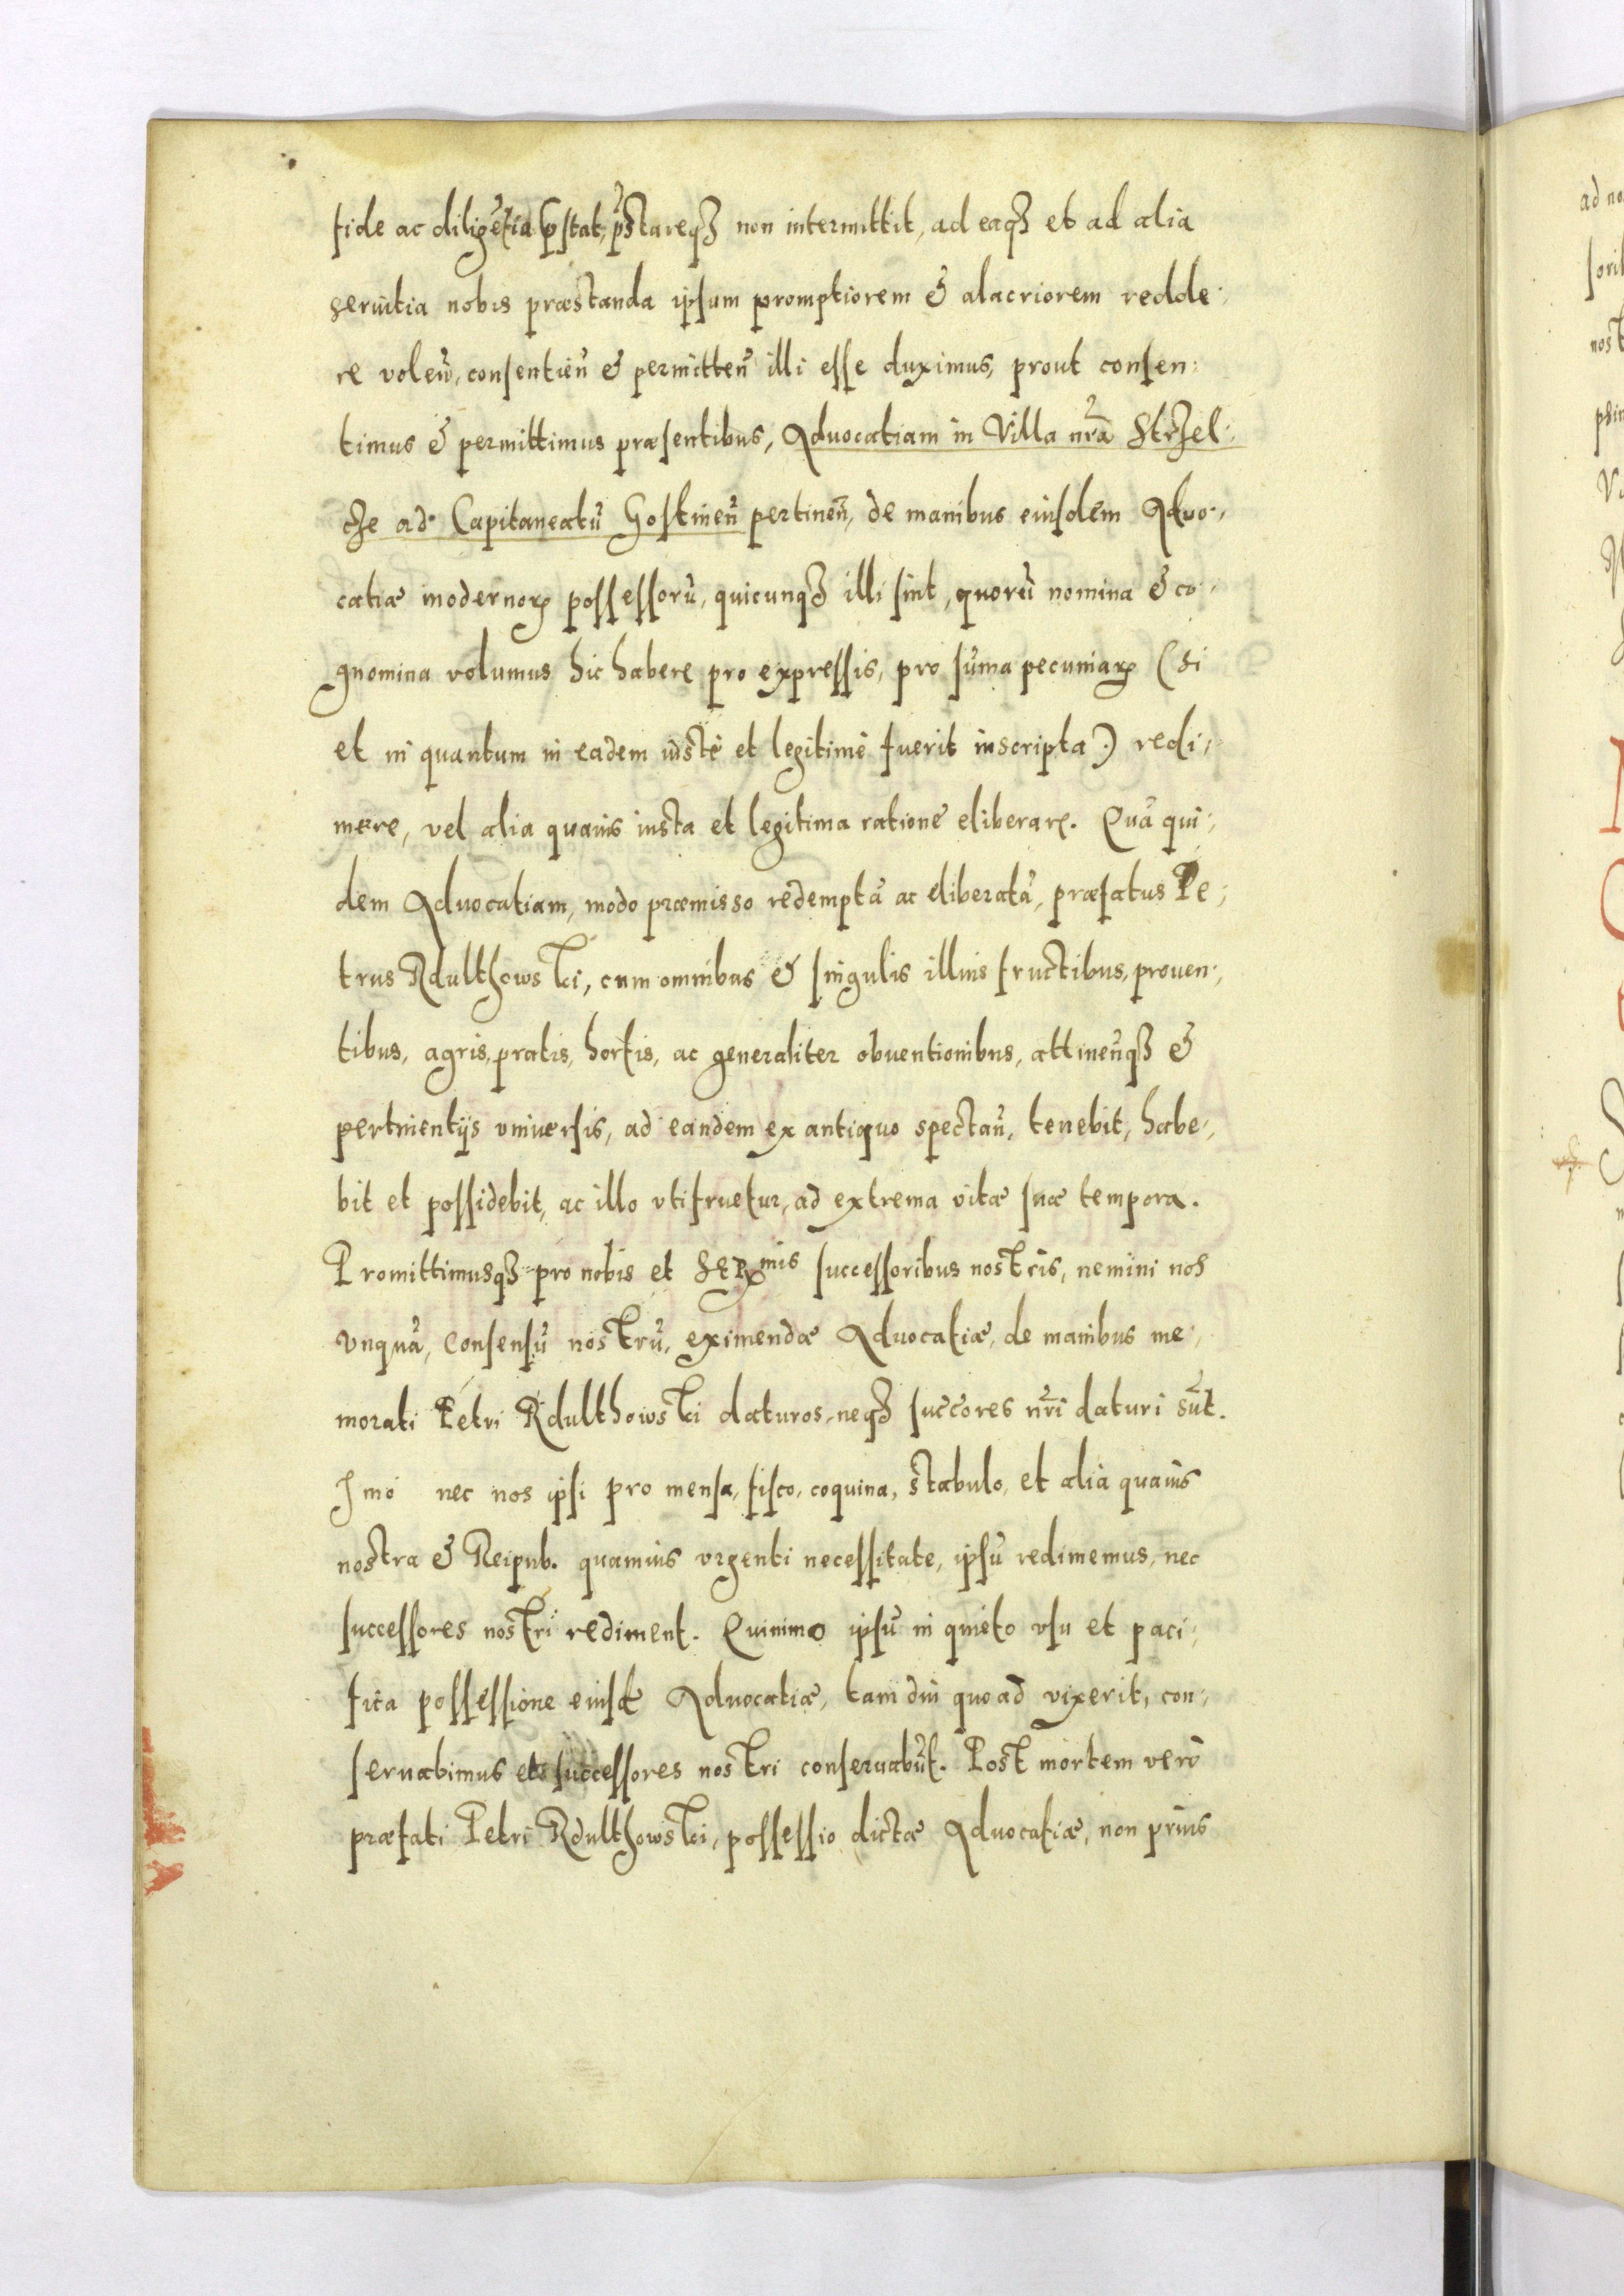 fide ac diligētia p̄stat, p̄stareqꝫ non intermittit, ad eaqꝫ et ad alia
seruitia nobis præstanda ipsum promptiorem & alacriorem redde:
re volen̄, consentien̄ & permitten̄ illi esse duximus, prout consen:
timus & permittimus præsentibus, Aduocatiam in Villa nr̄a Strzel:
cze ad Capitaneatū Gostinen̄ pertinen̄, de manibus eiusdem Aduo:
catiæ modernoꝝ possessorū, quicunqꝫ illi sint, quorū nomina & co:
gnomina volumus hic habere pro expressis, pro sūma pecuniaꝝ (si
et in quantum in eadem iustè et legitimè fuerit inscripta) redi:
mere, vel alia quauis iusta et legitima ratione eliberare. Quā qui:
dem Aduocatiam, modo præmisso redemptā ac eliberatā, præfatus Pe:
trus Rdulthowski, cum omnibus & singulis illius fructibus, prouen:
tibus, agris, pratis, hortis, ac generaliter obuentionibus, attinen̄qꝫ &
pertinentijs vniuersis, ad eandem ex antiquo spectan̄, tenebit, habe:
bit et possidebit, ac illo vtifruetur, ad extrema vitæ suæ tempora.
Promittimusqꝫ pro nobis et Sermis successoribus nostris, nemini nos
vnquā, consensū nostrū, eximendæ Aduocatiæ, de manibus me:
morati Petri Rdulthowski daturos, neqꝫ succores nr̄i daturi sūt.
Imò nec nos ipsi pro mensa, fisco, coquina, stabulo, et alia quauis
nostra & Reipub. quamuis vrgenti necessitate, ipsū redimemus, nec
successores nostri rediment. Quinimo ipsū in quieto vsu et paci:
fica possessione eiusd̄ Aduocatiæ, tam diu quoad vixerit, con:
seruabimus et successores nostri conseruabūt. Post mortem verò
præfati Petri Rdulthowski, possessio dictæ Aduocatiæ, non prius